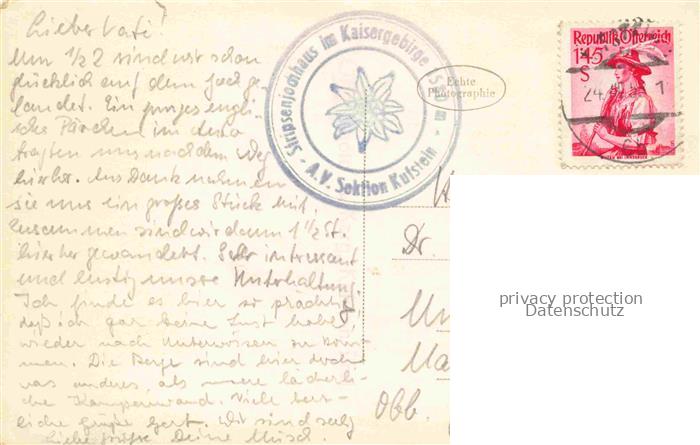 Lieber Vati!
Um 1/2 2 sind wir schon
glücklich auf dem Joch ge-
landet. Ein junges engli-
sches Pärchen im Auto
fragten uns nach dem Weg
hierher. Aus Dank nahmen
sie uns ein großes Stück mit.
Zusammen sind wir dann 1 1/2 St.
hierher gewandert. Sehr interessant
und lustig unsere Unterhaltung.
Ich finde es hier so prächtig
daß ich gar keine Lust habe,
wieder nach Unterwössen zu kom-
men. Die Berge sind hier doch
was anderes, als unsere lächerli-
che Kampenwand. Viele herz-
liche Grüße Gert. Wir sind
Liebe Grüße Deine
Stripsenjochhaus im Kaisergebirge 1580 m
A.V. Sektion Kufstein
Echte
Photographie
Republik Österreich
1·45
S
24.
Dr
Obb.
privacy protection
Datenschutz